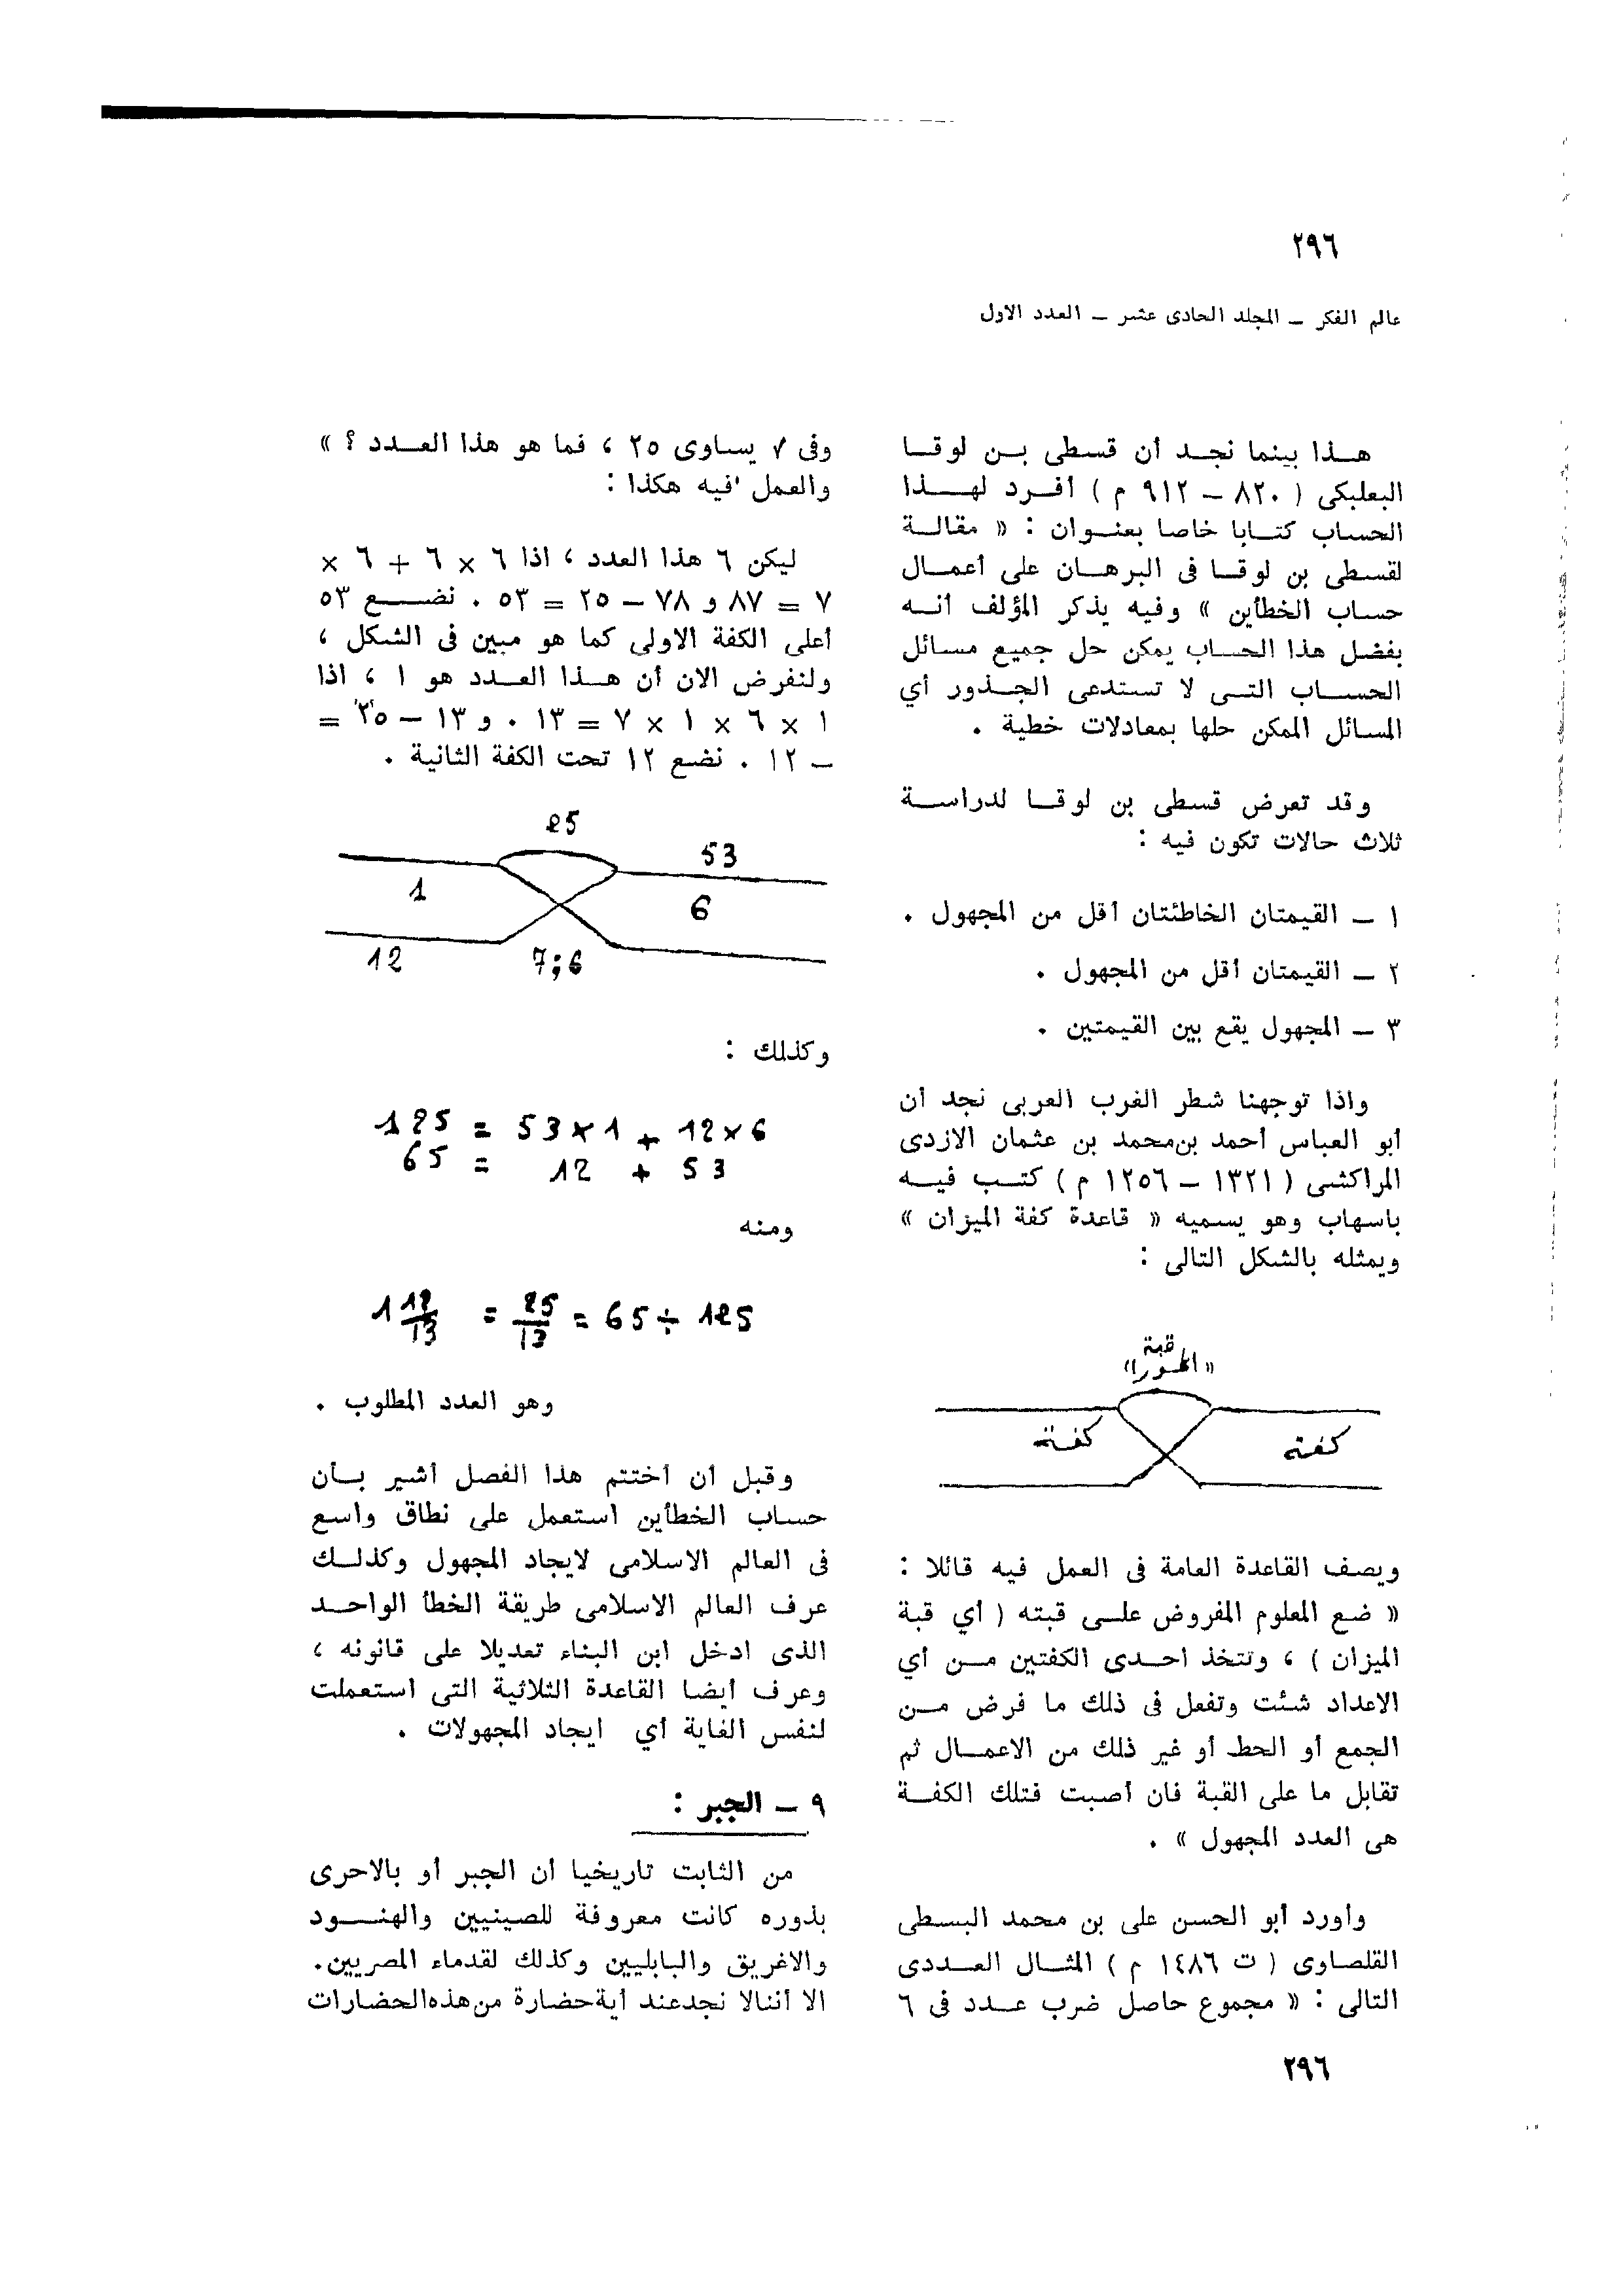 ٢٩٦
عالم الفكر ــ المجلد الحادى عشر ــ العدد الاول
هــذا بينما نجــد أن قسطى بــن لوقــا
البعلبكى ( ٨٢٠ ــ ٩١٢ م ) أفــرد لهــذا
الحساب كتــابا خاصا بعنــوان : « مقالــة
لقسطى بن لوقــا فى البرهــان على أعمــال
حساب الخطأين » وفيه يذكر المؤلف أنــه
بفضل هذا الحساب يمكن حل جميع مسائل
الحســاب التــى لا تستدعى الجــذور أي
المسائل الممكن حلها بمعادلات خطية .
وقد تعرض قسطى بن لوقــا لدراســة
ثلاث حالات تكون فيه :
١ ــ القيمتان الخاطئتان أقل من المجهول .
٢ ــ القيمتان أقل من المجهول .
٣ ــ المجهول يقع بين القيمتين .
واذا توجهنا شطر الغرب العربى نجد أن
أبو العباس أحمد بن‌محمد بن عثمان الازدى
المراكشى ( ١٣٢١ ــ ١٢٥٦ م ) كتــب فيــه
باسهاب وهو يسميه « قاعدة كفة الميزان »
ويمثله بالشكل التالى :
قبة
كفــة
كفــة
ويصف القاعدة العامة فى العمل فيه قائلا :
« ضع المعلوم المفروض علــى قبته ( أي قبة
الميزان ) ، وتتخذ احــدى الكفتين مــن أي
الاعداد شئت وتفعل فى ذلك ما فرض مــن
الجمع أو الحط أو غير ذلك من الاعمــال ثم
تقابل ما على القبة فان أصبت فتلك الكفــة
هى العدد المجهول » .
وأورد أبو الحسن على بن محمد البسطى
القلصاوى ( ت ١٤٨٦ م ) المثــال العــددى
التالى : « مجموع حاصل ضرب عــدد فى ٦
وفى ٧ يساوى ٢٥ ، فما هو هذا العــدد ؟ »
والعمل فيه هكذا :
ليكن ٦ هذا العدد ، اذا ٦ × ٦ + ٦ ×
٧ = ٨٧ و ٧٨ ــ ٢٥ = ٥٣ . نضــع ٥٣
أعلى الكفة الاولى كما هو مبين فى الشكل ،
ولنفرض الان أن هــذا العــدد هو ١ ، اذا
١ × ٦ × ١ × ٧ = ١٣ . و ١٣ ــ ٢٥ =
ــ ١٢ . نضع ١٢ تحت الكفة الثانية .
25
53
1
6
12
7;6
وكذلك :
125 = 53×1 + 12×6
65 = 12 + 53
ومنه
1 12/13 = 25/13 = 65 ÷ 125
وهو العدد المطلوب .
وقبل أن أختتم هذا الفصل أشير بــأن
حساب الخطأين استعمل على نطاق واسع
فى العالم الاسلامى لايجاد المجهول وكذلــك
عرف العالم الاسلامى طريقة الخطأ الواحــد
الذى ادخل ابن البناء تعديلا على قانونه ،
وعرف أيضا القاعدة الثلاثية التى استعملت
لنفس الغاية أي ايجاد المجهولات .
٩ ــ الجبر :
من الثابت تاريخيا أن الجبر أو بالاحرى
بذوره كانت معروفة للصينيين والهنــود
والاغريق والبابليين وكذلك لقدماء المصريين.
الا أننالا نجدعند أيةحضارة من‌هذه‌الحضارات
٢٩٦